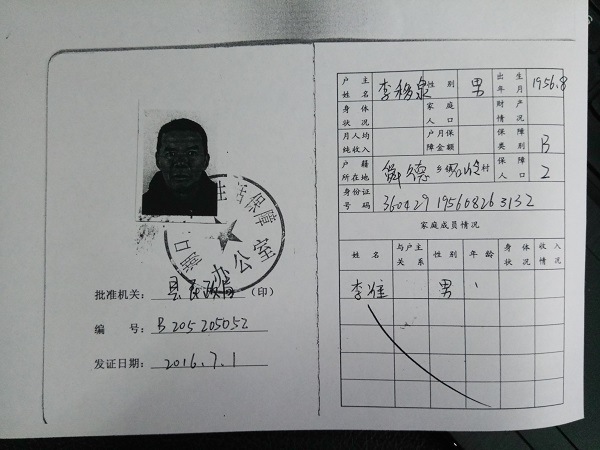 生活保障
湖口
办公室
批准机关：县民政局（印）
编 号：B205205052
发证日期：2016.7.1
户主姓名 李移泉 性别 男 出生年月 1956.8
身体状况 家庭人口 财产情况
月人均纯收入 户月保障金额 保障类别 B
户籍所在地 舜德 乡镇 村 保障人口 2
身份证号码 360429195608263132
家庭成员情况
姓名 与户主关系 性别 年龄 身体状况 收入情况
李淮 男